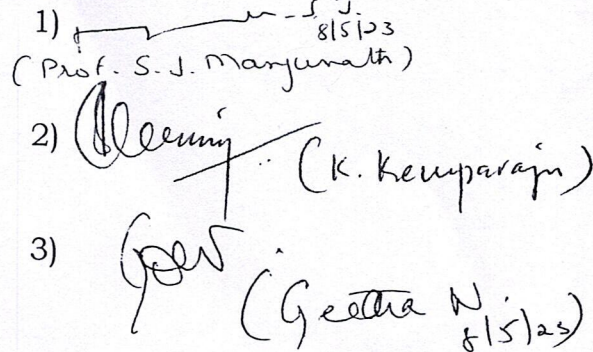 1)
8/5/23
(Prof. S. J. Manjunath)
2)
(K. Kemparaju)
3)
(Geetha N.
8/5/23)